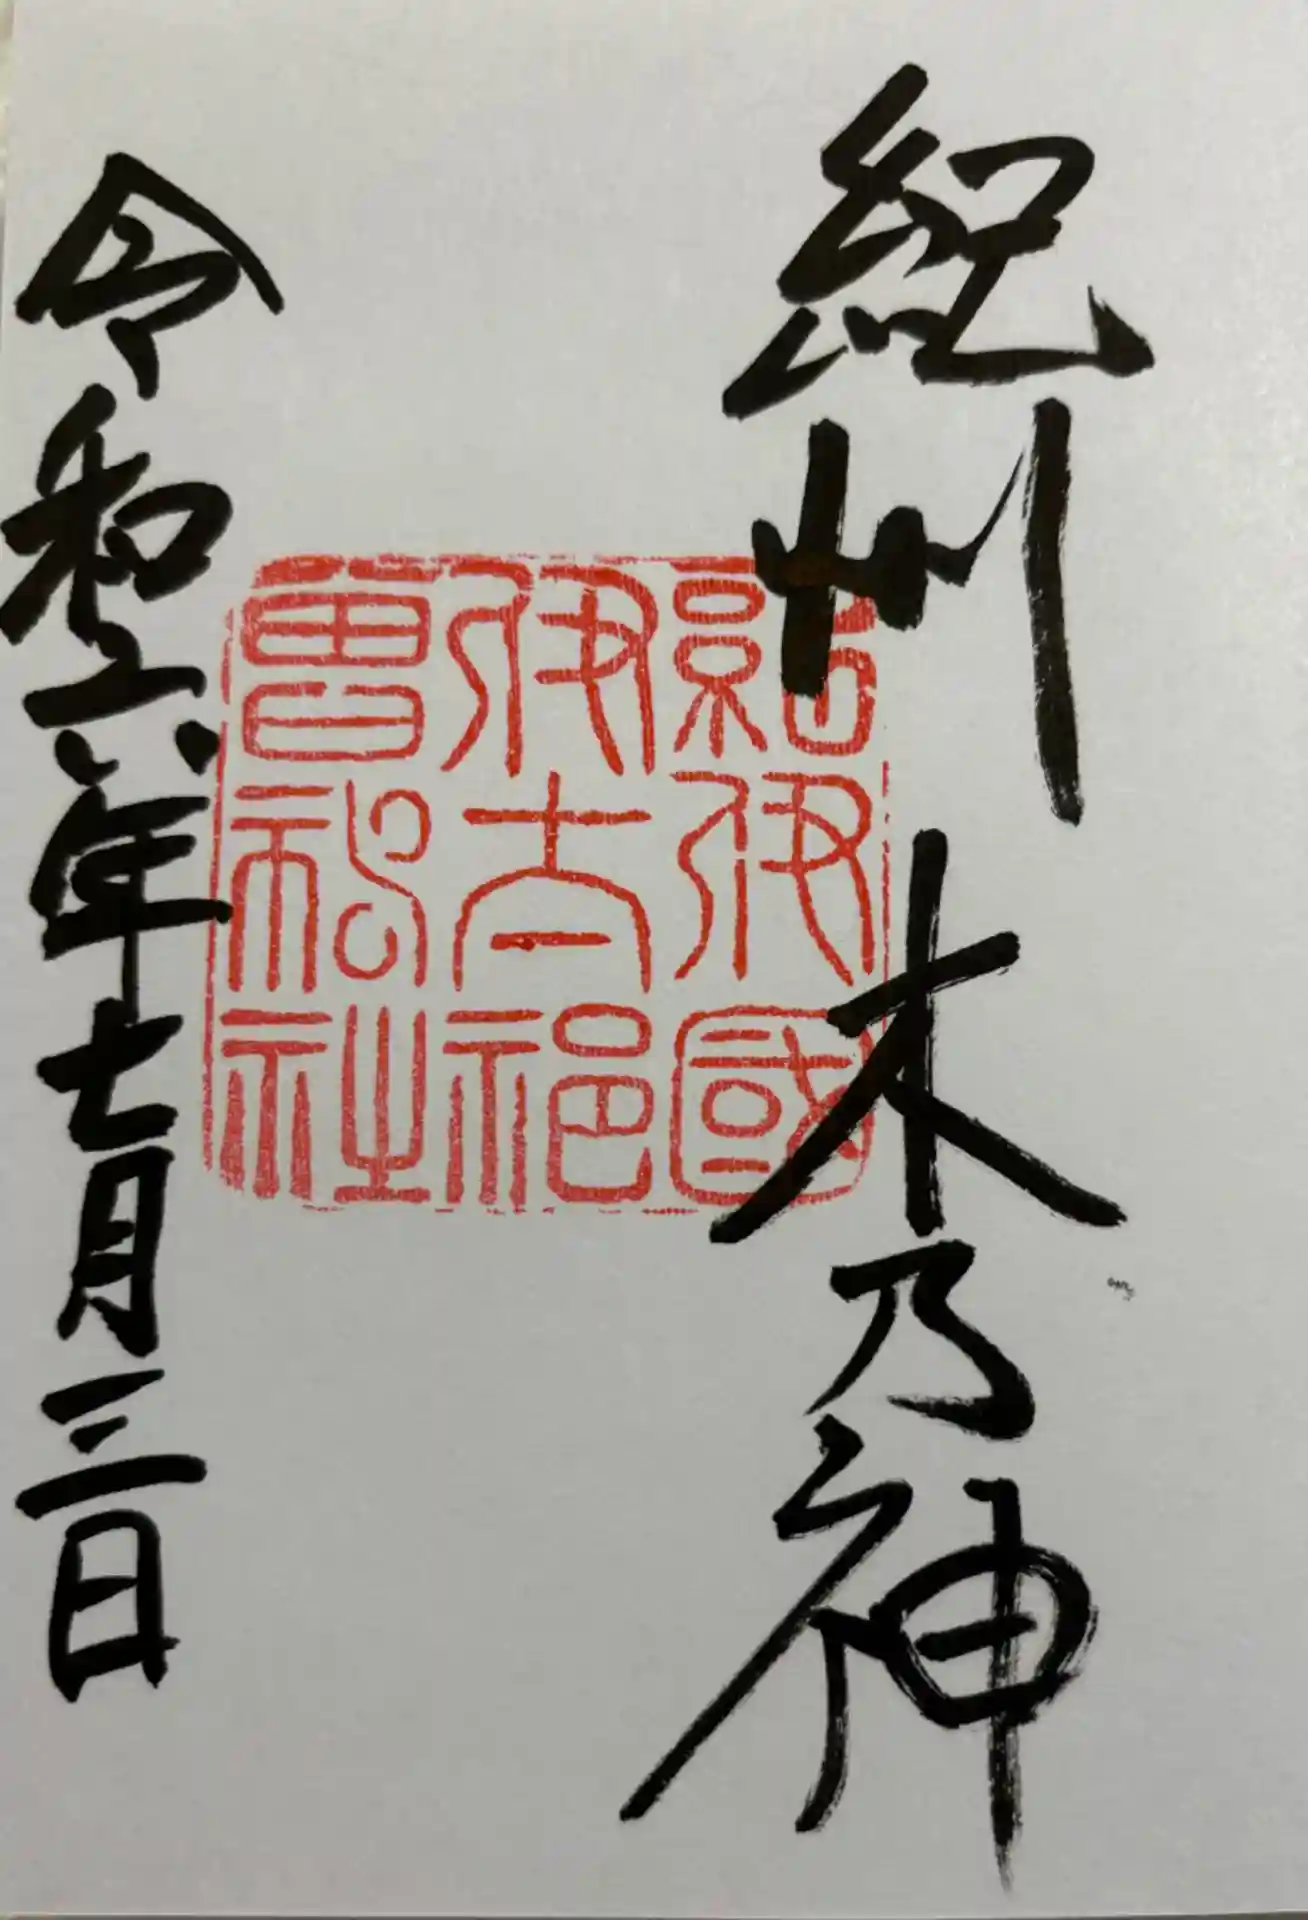 紀州木乃神
紀伊國
伊太祁
曽神社
令和六年七月三日